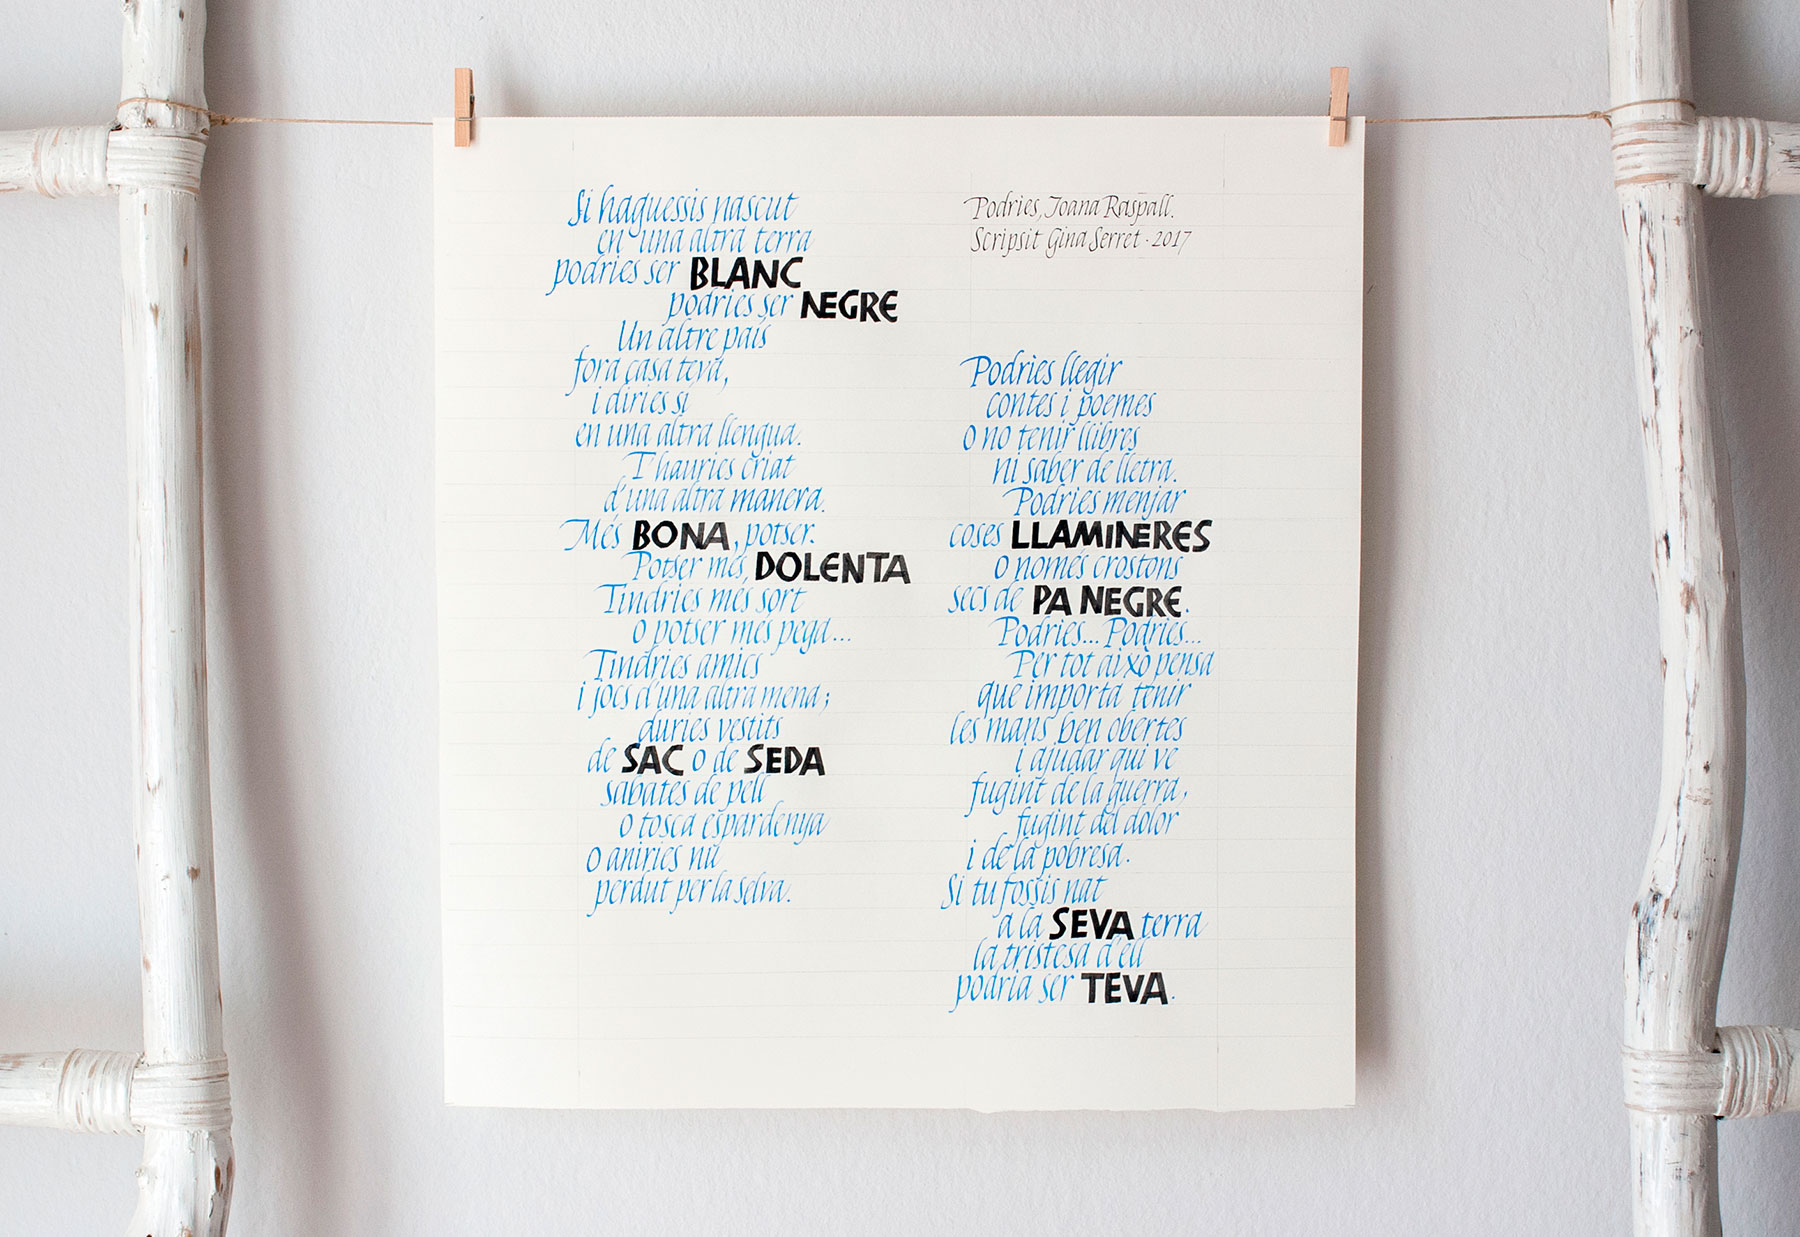 Si haguessis nascut
en una altra terra
podries ser BLANC
podries ser NEGRE
Un altre país
fora casa teva,
i diries sí
en una altra llengua.
T'hauries criat
d'una altra manera.
Més BONA, potser.
Potser més DOLENTA
Tindries més sort
o potser més pega...
Tindries amics
i jocs d'una altra mena;
duries vestits
de SAC o de SEDA
sabates de pell
o tosca espardenya
o aniries nu
perdut per la selva.
Podries, Joana Raspall.
Scripsit Gina Serret · 2017
Podries llegir
contes i poemes
o no tenir llibres
ni saber de lletra.
Podries menjar
coses LLAMINERES
o només crostons
secs de PA NEGRE.
Podries... Podries...
Per tot això pensa
que importa tenir
les mans ben obertes
i ajudar qui ve
fugint de la guerra,
fugint del dolor
i de la pobresa.
Si tu fossis nat
a la SEVA terra
la tristesa d'ell
podria ser TEVA.